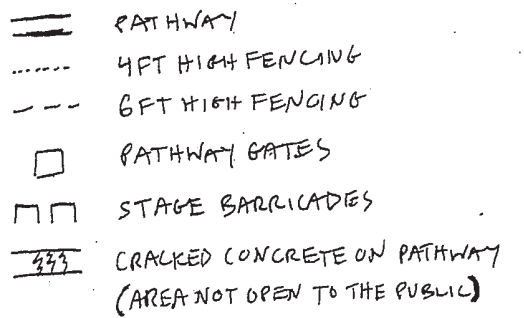 PATHWAY
4FT HIGH FENCING
6FT HIGH FENCING
PATHWAY GATES
STAGE BARRICADES
CRACKED CONCRETE ON PATHWAY
(AREA NOT OPEN TO THE PUBLIC)